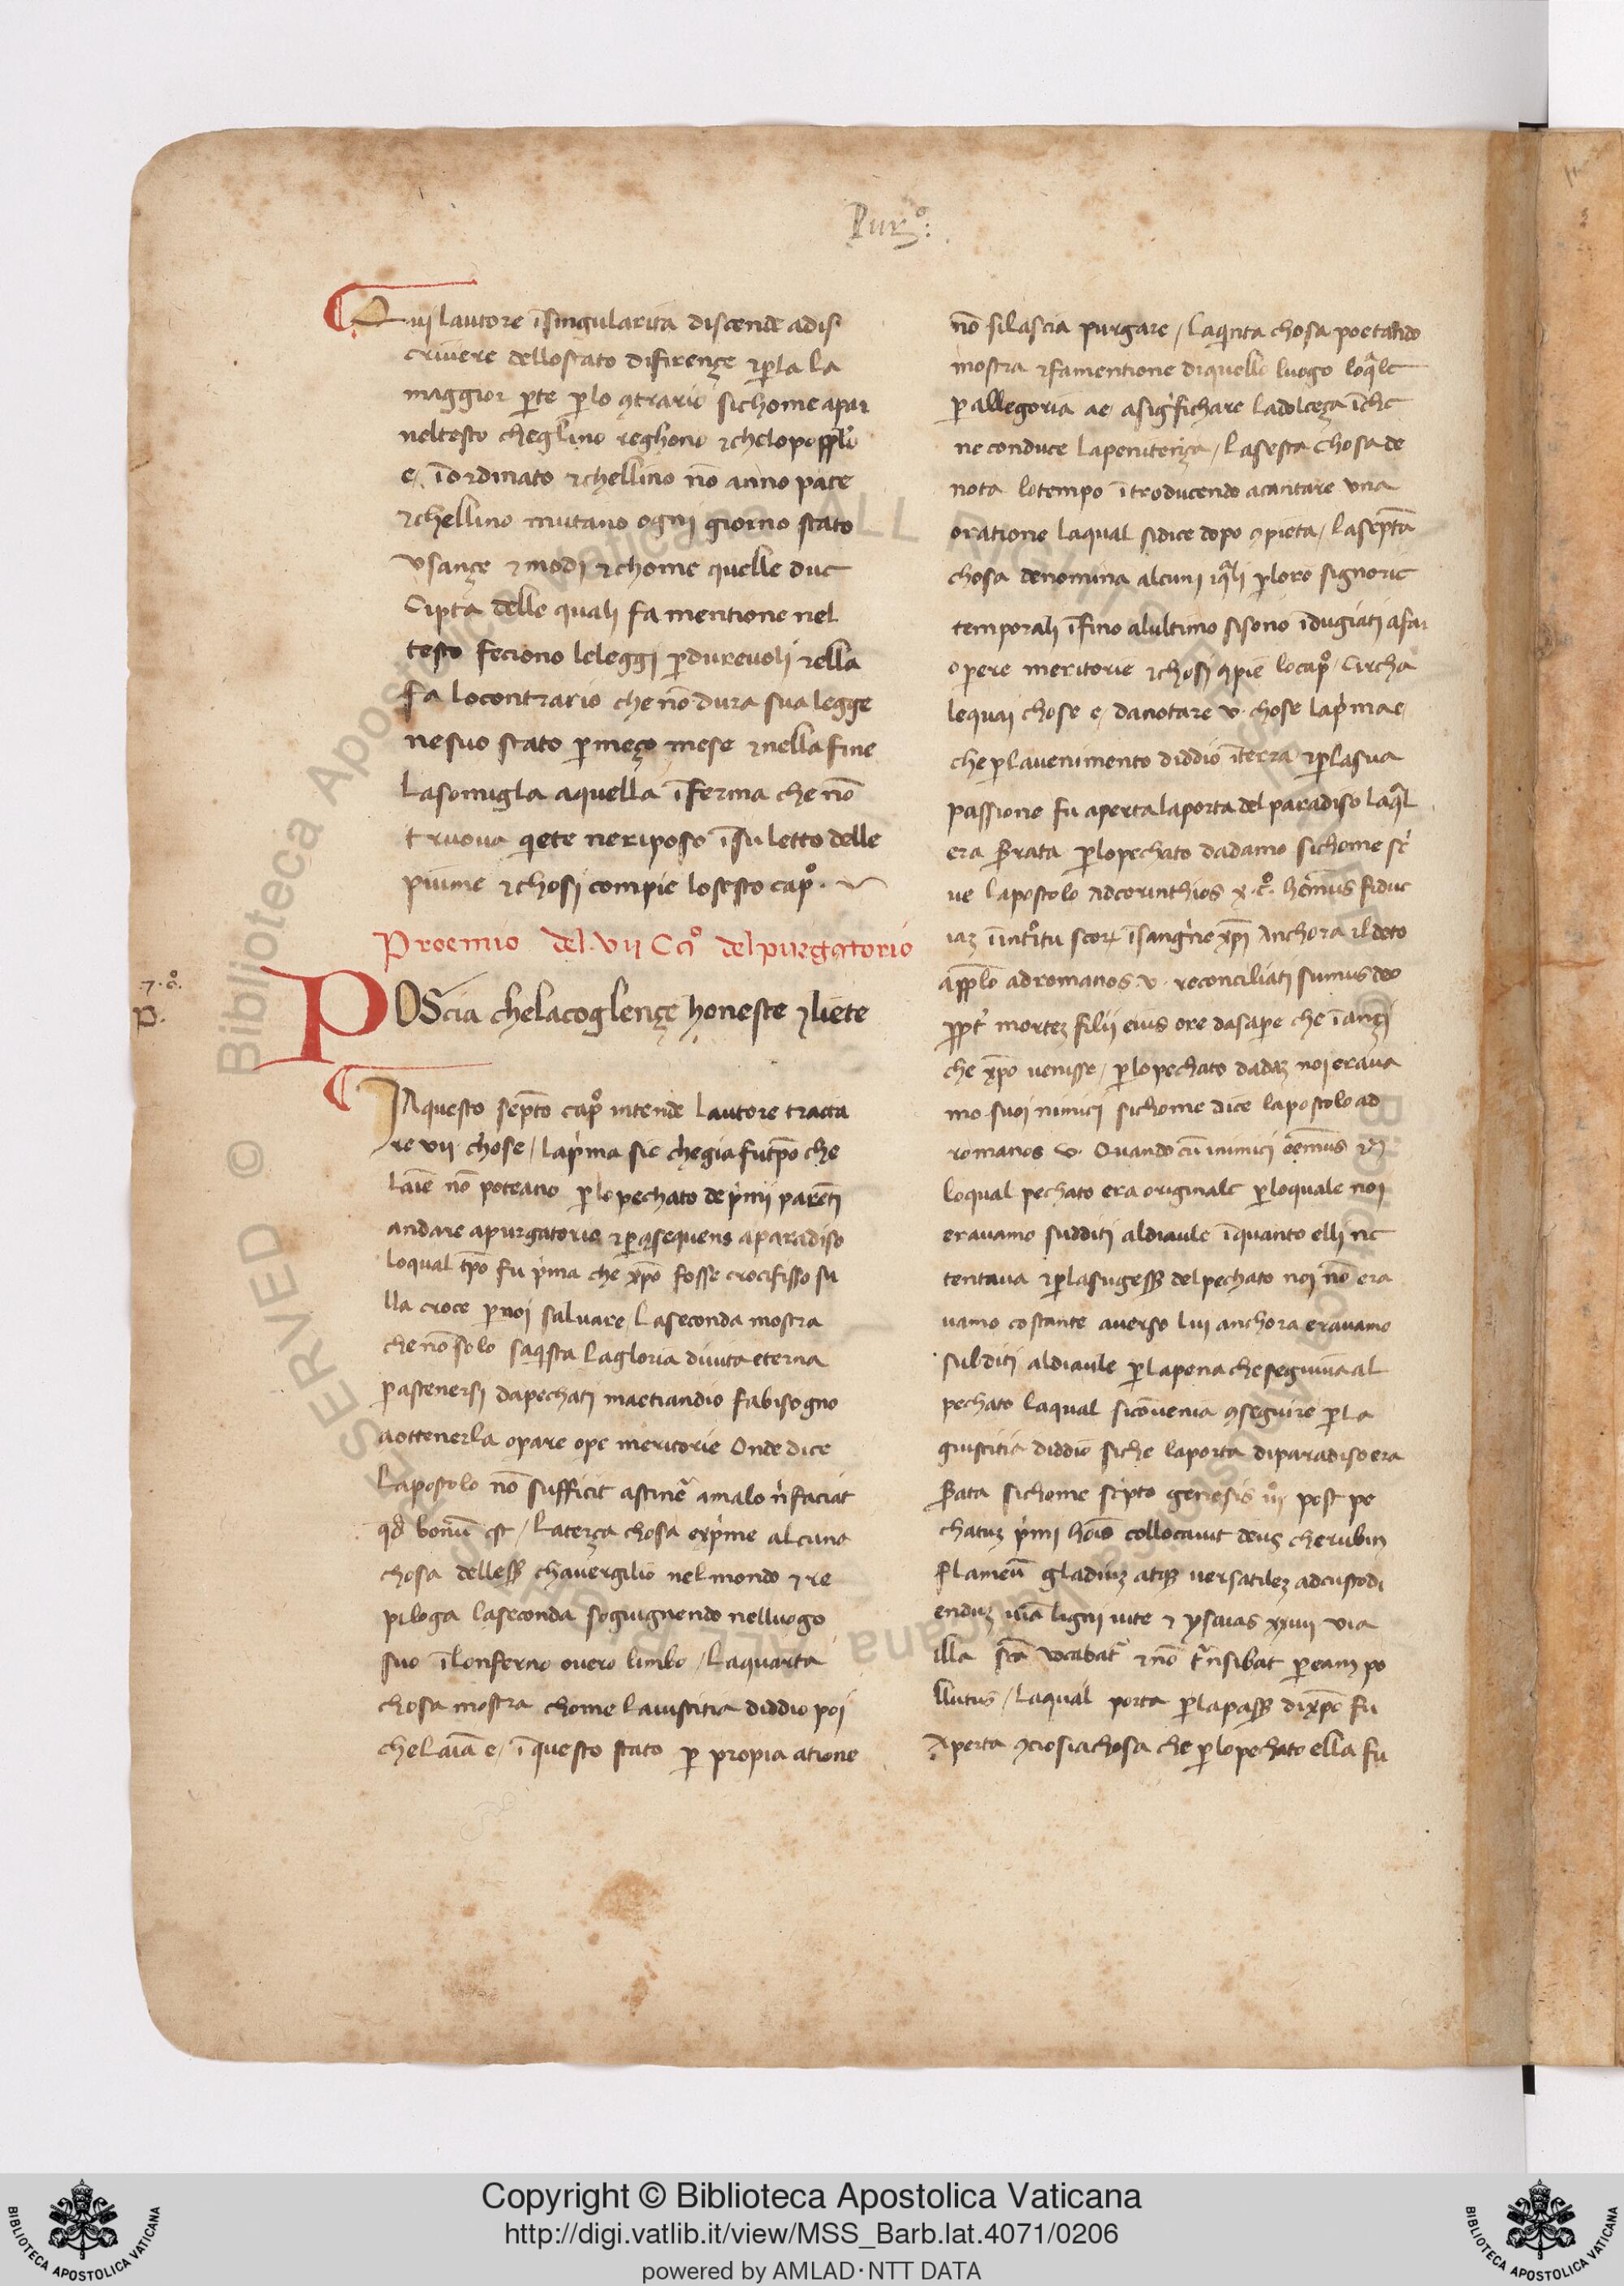 Purº:
Qui lautore īsingularita discende adis
crivere dellostato difirençe ⁊ꝑla la
maggior ꝑte ꝑlo ꝯtrario sichome apar
neltesto cheglino reghono ⁊chelopopplo
e īordinato ⁊chellino nō anno pace
⁊chellino mutano ogni giorno stato
vsançe ⁊ modi ⁊chome quelle due
Cipta delle quali fa mentione nel
testo feciono leleggi ꝑdurevoli ⁊ella
fa locontrario che nō dura sua legge
nesuo stato ꝑmeço mese ⁊nella fine
Lasomigla aquella īferma che nō
truova qiete neriposo īsuletto delle
piume ⁊chosi compie losesto capº.
Proemio del vii Caº delpurgatorio
7. cº.
P.
POScia chelacoglençe honeste ⁊liete
INquesto septo capº intende lautore tracta
re vii chose / laprima sie chegia fu tpō che
laīe nō poteano ꝑlopechato deprimi parēti
andare apurgatorio ⁊ꝑꝯsequens aparadiso
loqual tpō fu prima che xpō fosse crocifisso su
lla croce ꝑnoi salvare / Laseconda mostra
che nō solo saqsta lagloria divita eterna
ꝑastenersi dapechati maetiandio fabisogno
aottenerla oꝑare oꝑe meritorie Onde dice
Lapostolo nō sufficit astinē amalo nifaciat
qđ bonū est / Laterça chosa exprime alcuna
chosa dellesſ chavergilio nel mondo ⁊ re
piloga laseconda sogiugnendo nelluogo
suo īlonferno overo limbo / Laquarta
chosa mostra chome laiustitia diddio poi
chelaīa e / ī questo stato ꝑ propia atione
nō silascia purgare / laqinta chosa poetando
mostra ⁊famentione diquello luogo loqale
ꝑ allegoria ae asigifichare ladolceça īche
ne conduce lapenitença / Lasesta chosa de
nota lotempo ītroducendo acantare vna
oratione laqual sidice dopo ꝯpieta / Lasepta
chosa denomina alcuni iqali ꝑloro signorie
temporali īfino alultimo sisono īdugiati afar
opere meritorie ⁊chosi ꝯpie locapº / Circha
lequai chose e / danotare v. chose laprima e
che ꝑlavenimento diddio īterra ⁊ꝑlasua
passione fu aperta laporta del paradiso laqal
era serrata ꝑlopechato dadamo sichome scri
ve lapostolo adcorinthios x. cº. hēmus fiduc
iaꝫ ī introitu scorꝝ īsangine xpi Anchora ildeto
applo adromanos v. reconciliati sumus deo
ꝓpt morteꝫ filii eius ore dasape che īançi
che xpō venisse / ꝑlopechato dadaꝫ noi erava
mo suoi nimici sichome dice lapostolo ad
romanos v. Quando cū inimici eēmus ⁊c
loqual pechato era originale ꝑloquale noi
eravamo sudditi aldiavole īquanto elli ne
tentava ⁊ꝑlasugesſ delpechato noi nō era
vamo costante averso lui anchora eravamo
subditi aldiavole ꝑlapena cheseguiva al
pechato laqual sicōvenia ꝯseguire ꝑla
giustitia diddio siche laporta diparadiso era
serata sichome scripto genesis iiiº post pe
chatuꝫ primi hōis collocavit deus cherubin
flameū gladiuꝫ atqꝫ versatileꝫ adcustodi
enduꝫ viā ligni vite ⁊ ysaias xxiiii via
illa scā vocabat ⁊nō trāsibat ꝑeam po
llutus / Laqual porta ꝑlapasſ dixpō fu
Aperta ꝯciosiachosa che ꝑlopechato ella fu
Copyright © Biblioteca Apostolica Vaticana
http://digi.vatlib.it/view/MSS_Barb.lat.4071/0206
powered by AMLAD·NTT DATA
BIBLIOTECA APOSTOLICA VATICANA
BIBLIOTECA APOSTOLICA VATICANA